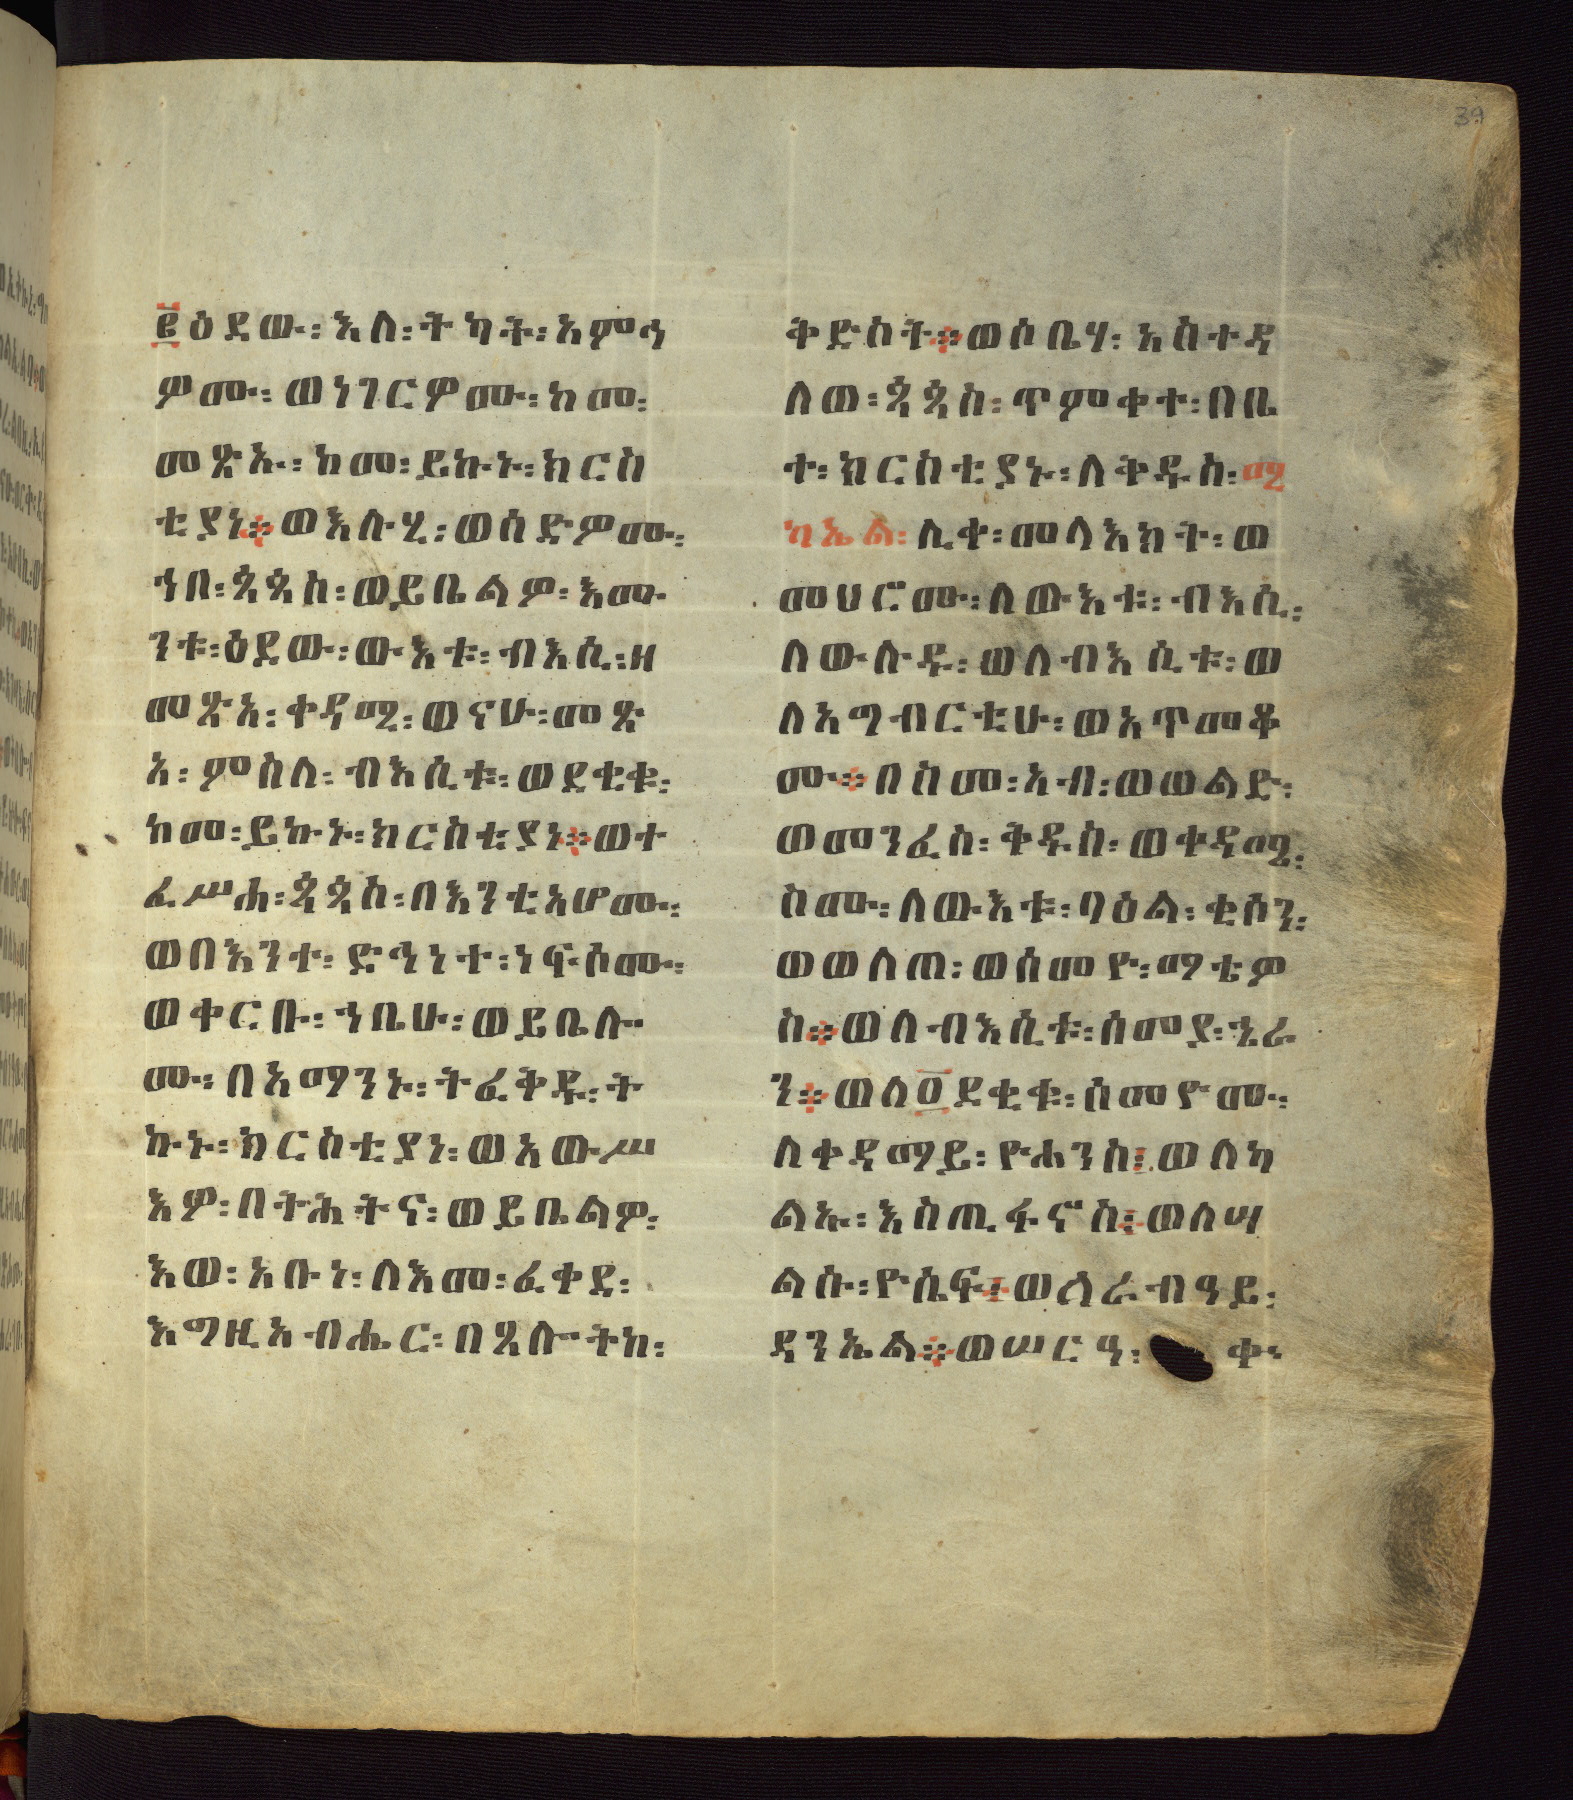 39
፪ዕደው፡ እለ፡ ትካት፡ አምኃ
ዎሙ፡ ወነገርዎሙ፡ ከመ፡
መጽኡ፡ ከመ፡ ይኩኑ፡ ክርስ
ቲያነ። ወእሉሂ፡ ወሰድዎሙ፡
ኀበ፡ ጳጳስ፡ ወይቤልዎ፡ እሙ
ንቱ፡ ዕደው፡ ውእቱ፡ ብእሲ፡ ዘ
መጽአ፡ ቀዳሚ፡ ወናሁ፡ መጽ
አ፡ ምስለ፡ ብእሲቱ፡ ወደቂቁ፡
ከመ፡ ይኩኑ፡ ክርስቲያነ። ወተ
ፈሥሐ፡ ጳጳስ፡ በእንቲአሆሙ፡
ወበእንተ፡ ድኅነተ፡ ነፍሶሙ፡
ወቀርቡ፡ ኀቤሁ፡ ወይቤሎ
ሙ፡ በአማንኑ፡ ትፈቅዱ፡ ት
ኩኑ፡ ክርስቲያነ፡ ወአውሥ
እዎ፡ በትሕትና፡ ወይቤልዎ፡
እወ፡ አቡነ፡ ለእመ፡ ፈቀደ፡
እግዚአብሔር፡ በጸሎትከ፡
ቅድስት። ወሶቤሃ፡ አስተዳ
ለወ፡ ጳጳስ፡ ጥምቀተ፡ በቤ
ተ፡ ክርስቲያኑ፡ ለቅዱስ፡ ሚ
ካኤል፡ ሊቀ፡ መላእክት፡ ወ
መሀሮሙ፡ ለውእቱ፡ ብእሲ፡
ለውሉዱ፡ ወለብእሲቱ፡ ወ
ለአግብርቲሁ፡ ወአጥመቆ
ሙ። በስመ፡ አብ፡ ወወልድ፡
ወመንፈስ፡ ቅዱስ፡ ወቀዳሚ፡
ስሙ፡ ለውእቱ፡ ባዕል፡ ቂሶን፡
ወወለጠ፡ ወሰመዮ፡ ማቴዎ
ስ። ወለብእሲቱ፡ ሰመያ፡ ኂራ
ን። ወለ፬ደቂቁ፡ ሰመዮሙ፡
ለቀዳማይ፡ ዮሐንስ፤ ወለካ
ልኡ፡ እስጢፋኖስ፤ ወለሣ
ልሱ፡ ዮሴፍ፤ ወለራብዓይ፡
ዳንኤል። ወሠርዓ፡ ቀ፡